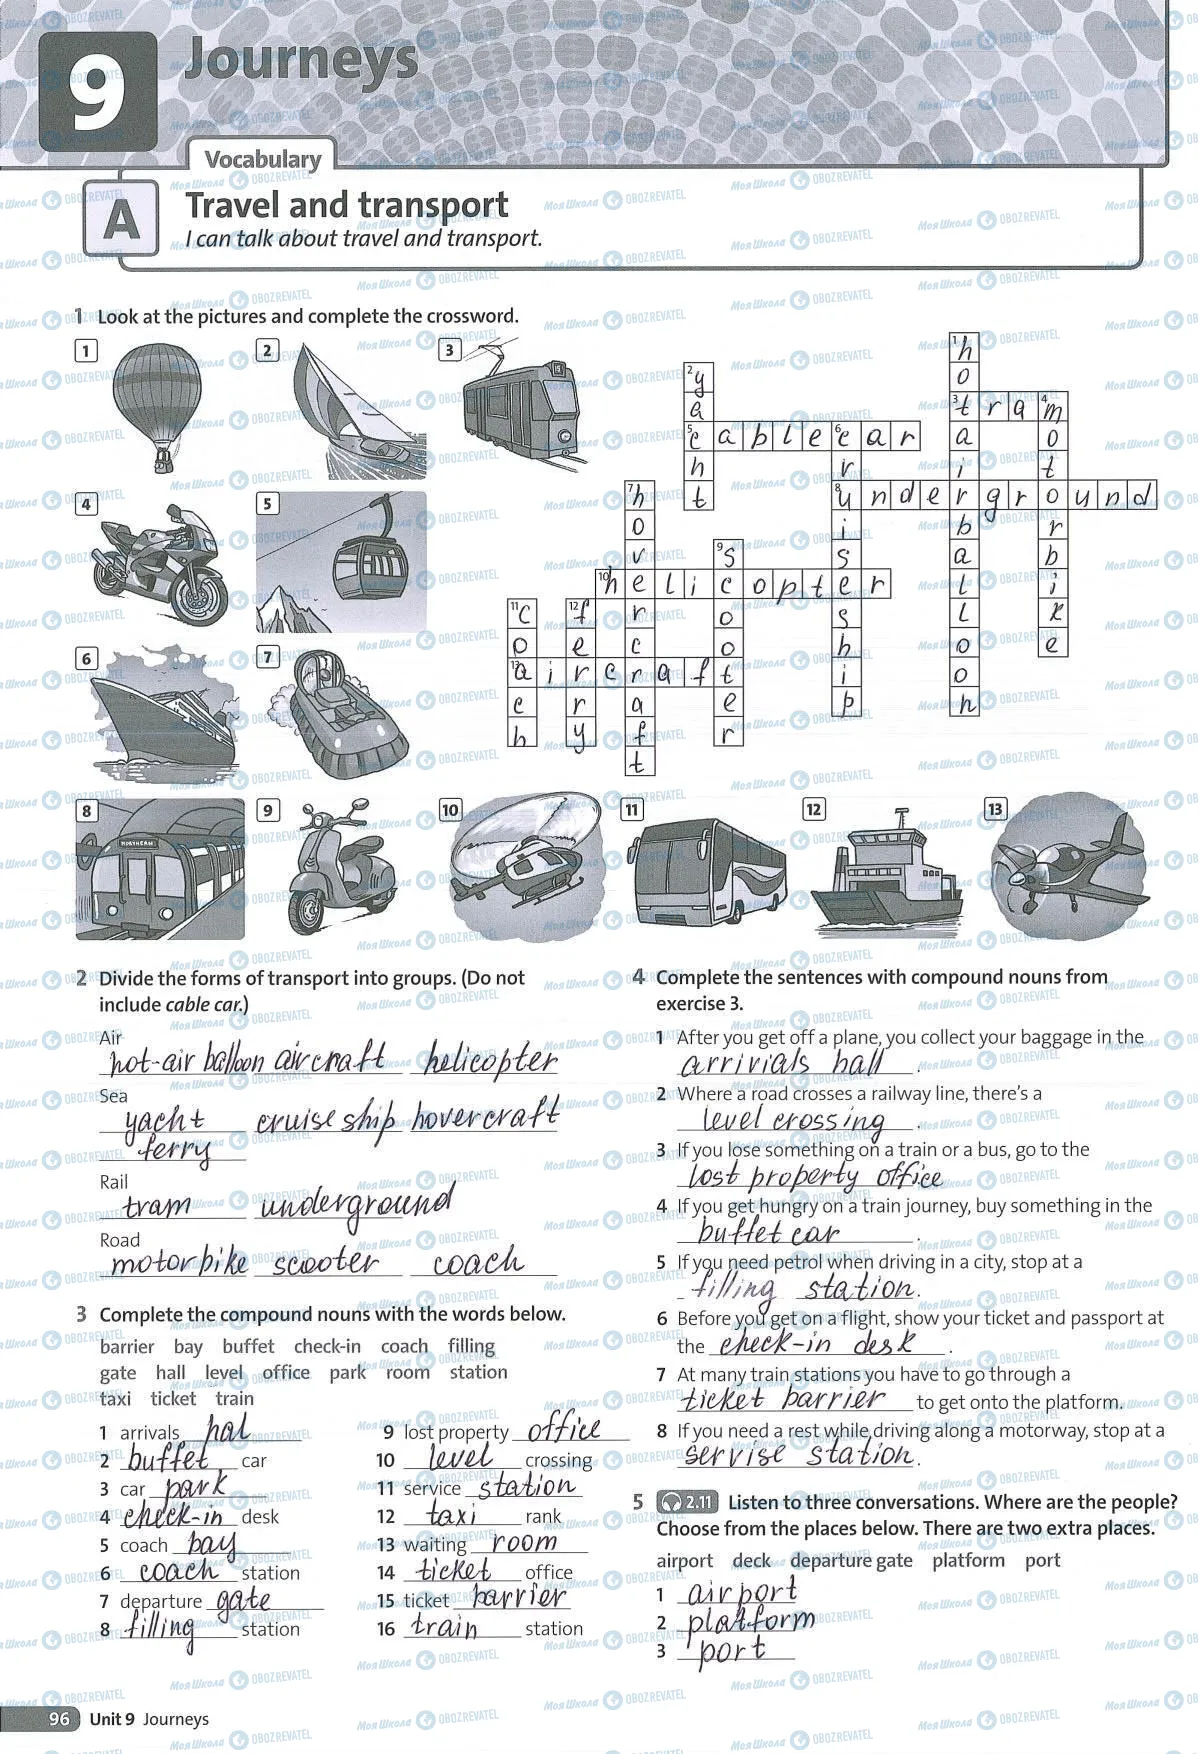 9 Journeys
Vocabulary
A Travel and transport
I can talk about travel and transport.
1 Look at the pictures and complete the crossword.
1 2 3
4 5
6 7
8 9 10 11 12 13
NORTHERN
hot air balloon
yacht
tram
motorbike
cable car
cruise ship
hovercraft
underground
scooter
helicopter
coach
ferry
aircraft
2 Divide the forms of transport into groups. (Do not
include cable car.)
Air
hot-air balloon aircraft helicopter
Sea
yacht cruise ship hovercraft
ferry
Rail
tram underground
Road
motorbike scooter coach
3 Complete the compound nouns with the words below.
barrier bay buffet check-in coach filling
gate hall level office park room station
taxi ticket train
1 arrivals hal
2 buffet car
3 car park
4 check-in desk
5 coach bay
6 coach station
7 departure gate
8 filling station
9 lost property office
10 level crossing
11 service station
12 taxi rank
13 waiting room
14 ticket office
15 ticket barrier
16 train station
4 Complete the sentences with compound nouns from
exercise 3.
1 After you get off a plane, you collect your baggage in the
arrivials hall .
2 Where a road crosses a railway line, there's a
level crossing .
3 If you lose something on a train or a bus, go to the
lost property office
4 If you get hungry on a train journey, buy something in the
buffet car .
5 If you need petrol when driving in a city, stop at a
filling station .
6 Before you get on a flight, show your ticket and passport at
the check-in desk .
7 At many train stations you have to go through a
ticket barrier to get onto the platform.
8 If you need a rest while driving along a motorway, stop at a
servise station .
5 2.11 Listen to three conversations. Where are the people?
Choose from the places below. There are two extra places.
airport deck departure gate platform port
1 airport
2 platform
3 port
96 Unit 9 Journeys
Моя Школа OBOZREVATEL